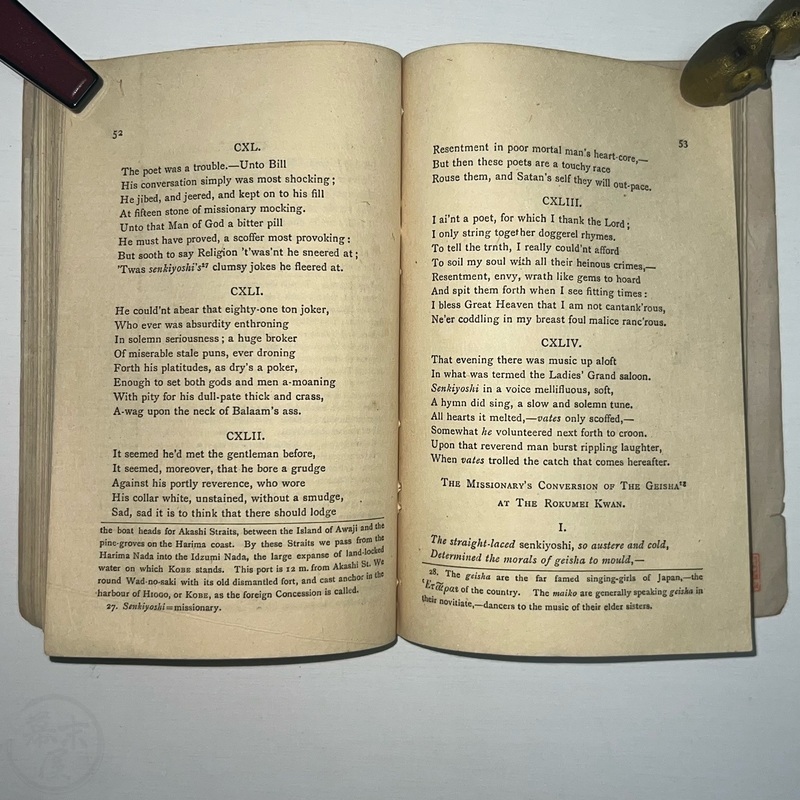 52
CXL.
The poet was a trouble.—Unto Bill
His conversation simply was most shocking;
He jibed, and jeered, and kept on to his fill
At fifteen stone of missionary mocking.
Unto that Man of God a bitter pill
He must have proved, a scoffer most provoking:
But sooth to say Religion 't'was'nt he sneered at;
'Twas senkiyoshi's²⁷ clumsy jokes he fleered at.
CXLI.
He could'nt abear that eighty-one ton joker,
Who ever was absurdity enthroning
In solemn seriousness; a huge broker
Of miserable stale puns, ever droning
Forth his platitudes, as dry's a poker,
Enough to set both gods and men a-moaning
With pity for his dull-pate thick and crass,
A-wag upon the neck of Balaam's ass.
CXLII.
It seemed he'd met the gentleman before,
It seemed, moreover, that he bore a grudge
Against his portly reverence, who wore
His collar white, unstained, without a smudge,
Sad, sad it is to think that there should lodge
the boat heads for Akashi Straits, between the Island of Awaji and the
pine-groves on the Harima coast. By these Straits we pass from the
Harima Nada into the Idzumi Nada, the large expanse of land-locked
water on which KOBE stands. This port is 12 m. from Akashi St. We
round Wad-no-saki with its old dismantled fort, and cast anchor in the
harbour of HIOGO, or KOBE, as the foreign Concession is called.
27. Senkiyoshi=missionary.
53
Resentment in poor mortal man's heart-core,—
But then these poets are a touchy race
Rouse them, and Satan's self they will out-pace.
CXLIII.
I ai'nt a poet, for which I thank the Lord;
I only string together doggerel rhymes.
To tell the trnth, I really could'nt afford
To soil my soul with all their heinous crimes,—
Resentment, envy, wrath like gems to hoard
And spit them forth when I see fitting times:
I bless Great Heaven that I am not cantank'rous,
Ne'er coddling in my breast foul malice ranc'rous.
CXLIV.
That evening there was music up aloft
In what was termed the Ladies' Grand saloon.
Senkiyoshi in a voice mellifluous, soft,
A hymn did sing, a slow and solemn tune.
All hearts it melted,—vates only scoffed,—
Somewhat he volunteered next forth to croon.
Upon that reverend man burst rippling laughter,
When vates trolled the catch that comes hereafter.
THE MISSIONARY'S CONVERSION OF THE GEISHA²⁸
AT THE ROKUMEI KWAN.
I.
The straight-laced senkiyoshi, so austere and cold,
Determined the morals of geisha to mould,—
28. The geisha are the far famed singing-girls of Japan,—the
Ἑταῖραι of the country. The maiko are generally speaking geisha in
their novitiate,—dancers to the music of their elder sisters.
幕末屋